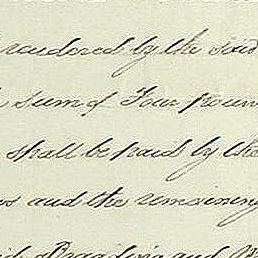 rendered by the said
sum of Four poun
shall be paid by the
and the remaining
and